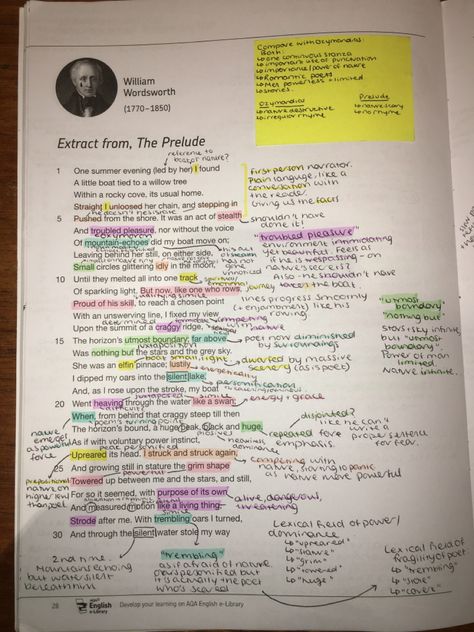 Compare with Ozymandias:
Both:
↳ one continuous stanza
↳ important use of punctuation
↳ importance/power of nature
↳ Romantic poets
↳ Mens powerless + limited
↳ stories.
Ozymandias
Prelude
↳ nature destructive
↳ nature scary
↳ irregular rhyme
↳ no rhyme
William
Wordsworth
(1770–1850)
Extract from, The Prelude
reference to
boat or nature?
1 One summer evening (led by her) I found
A little boat tied to a willow tree
Within a rocky cove, its usual home.
Straight I unloosed her chain, and stepping in
he doesn't hesitate
5 Pushed from the shore. It was an act of stealth
And troubled pleasure, nor without the voice
oxymoron
Of mountain-echoes did my boat move on;
Leaving behind her still, on either side,
Small circles glittering idly in the moon,
10 Until they melted all into one track
Of sparkling light. But now, like one who rows,
Proud of his skill, to reach a chosen point
With an unswerving line, I fixed my view
Upon the summit of a craggy ridge,
15 The horizon's utmost boundary; far above
Was nothing but the stars and the grey sky.
She was an elfin pinnace; lustily
I dipped my oars into the silent lake,
And, as I rose upon the stroke, my boat
20 Went heaving through the water like a swan;
When, from behind that craggy steep till then
The horizon's bound, a huge peak, black and huge,
As if with voluntary power instinct,
Upreared its head. I struck and struck again,
25 And growing still in stature the grim shape
Towered up between me and the stars, and still,
For so it seemed, with purpose of its own
And measured motion like a living thing,
Strode after me. With trembling oars I turned,
30 And through the silent water stole my way
first person narrator.
Plain language, like a
conversation with
the reader.
Giving us the facts
shouldn't have
done it!
"troubled pleasure"
environment intimidating
yet beautiful. Feels as
if he is trespassing - on
nature's secret.
Also he shouldn't have
taken the boat.
lines progress smoothly
(+enjambment) like his
rowing.
"utmost
boundary"
"nothing but"
stars + sky infinite
but "utmost
boundary".
Power of man
limited.
Nature infinite.
poet now diminished
by surroundings
dwarfed by massive
scenery (as is poet)
energetically
personification
simile
energy + grace
poems turning point
disjointed?
like he can't
write a
proper sentence
for fear.
repeated for
emphasis.
competing with
nature, starting to panic
as nature more powerful
powerful
alive, dangerous,
threatening
simile
nature
emerges
as powerful
force
prepositional
nature on
higher level
than poet
2nd time.
Mountains echoing
but water silent
beneath him
"trembling"
as if afraid of nature.
oars personified but
it is actually the poet
who's scared
Lexical field of power/
dominance
↳ "upreared"
↳ "stature"
↳ "grim"
↳ "towered"
↳ "huge"
Lexical field of
fragility of poet
↳ "trembling"
↳ "stole"
↳ "cover"
28
AQA
English
e-Library
Develop your learning on AQA English e-Library